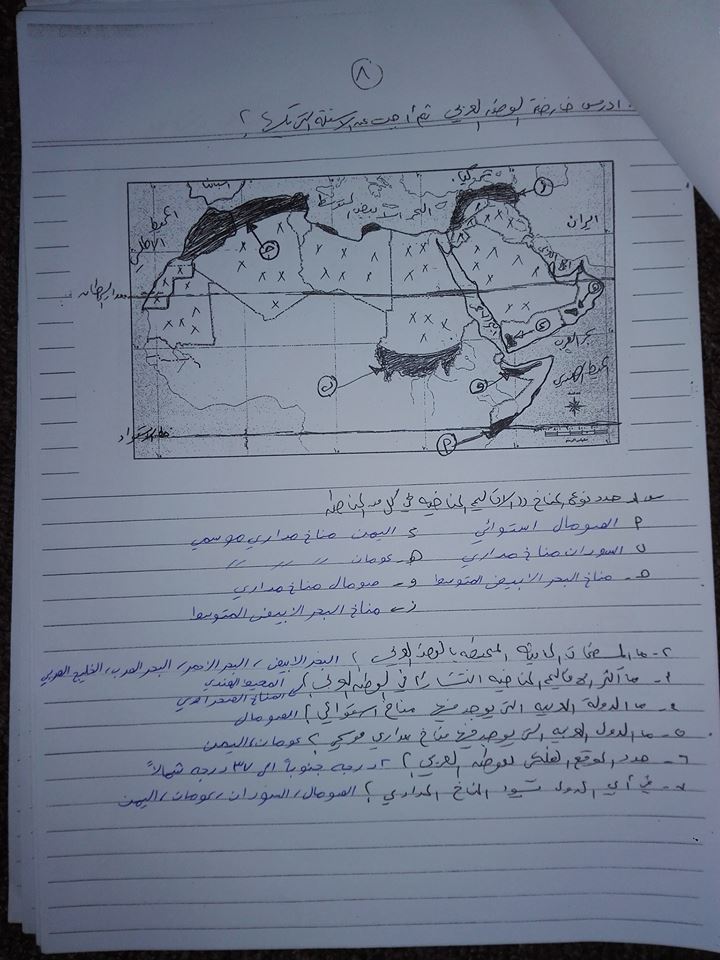 ٨
ادرس خارطة الوطن العربي ثم أجب عن الاسئلة التي تليها ؟
اسبانيا
تركيا
ز
المحيط الاطلسي
البحر الابيض المتوسط
ايران
ح
مدار السرطان
بحر العرب
المحيط الهندي
خط الاستواء
س١ـ حدد نوع المناخ ((الاقاليم المناخية في كل من المناطق
٩ الصومال استوائي
ى اليمن مناخ مداري موسمي
ب السودان مناخ مداري
هـ عومان // // //
ح ـ مناخ البحر الابيض المتوسط
و ـ صومال مناخ مداري
ز ـ مناخ البحر الابيض المتوسط
٢ـ ما المسطحات المائية المحيطة بالوطن العربي ؟ البحر الابيض / البحر الاحمر / البحر العرب / الخليج العربي
المحيط الهندي
ما أكثر الاقاليم المناخية انتشاراً في الوطن العربي ؟ المناخ الصحراوي
ما الدولة العربية التي يوجد فيها مناخ استوائي ؟ الصومال
٥ـ ما الدول العربية التي يوجد فيها مناخ مداري موسمي ؟ عومان / اليمن
٦ـ حدد الموقع الفلكي للوطن العربي ؟ ٢ درجه جنوباً الى ٣٧ درجه شمالاً
٧ـ في أي الدول يسود المناخ المداري ؟ الصومال / السودان / عومان / اليمن